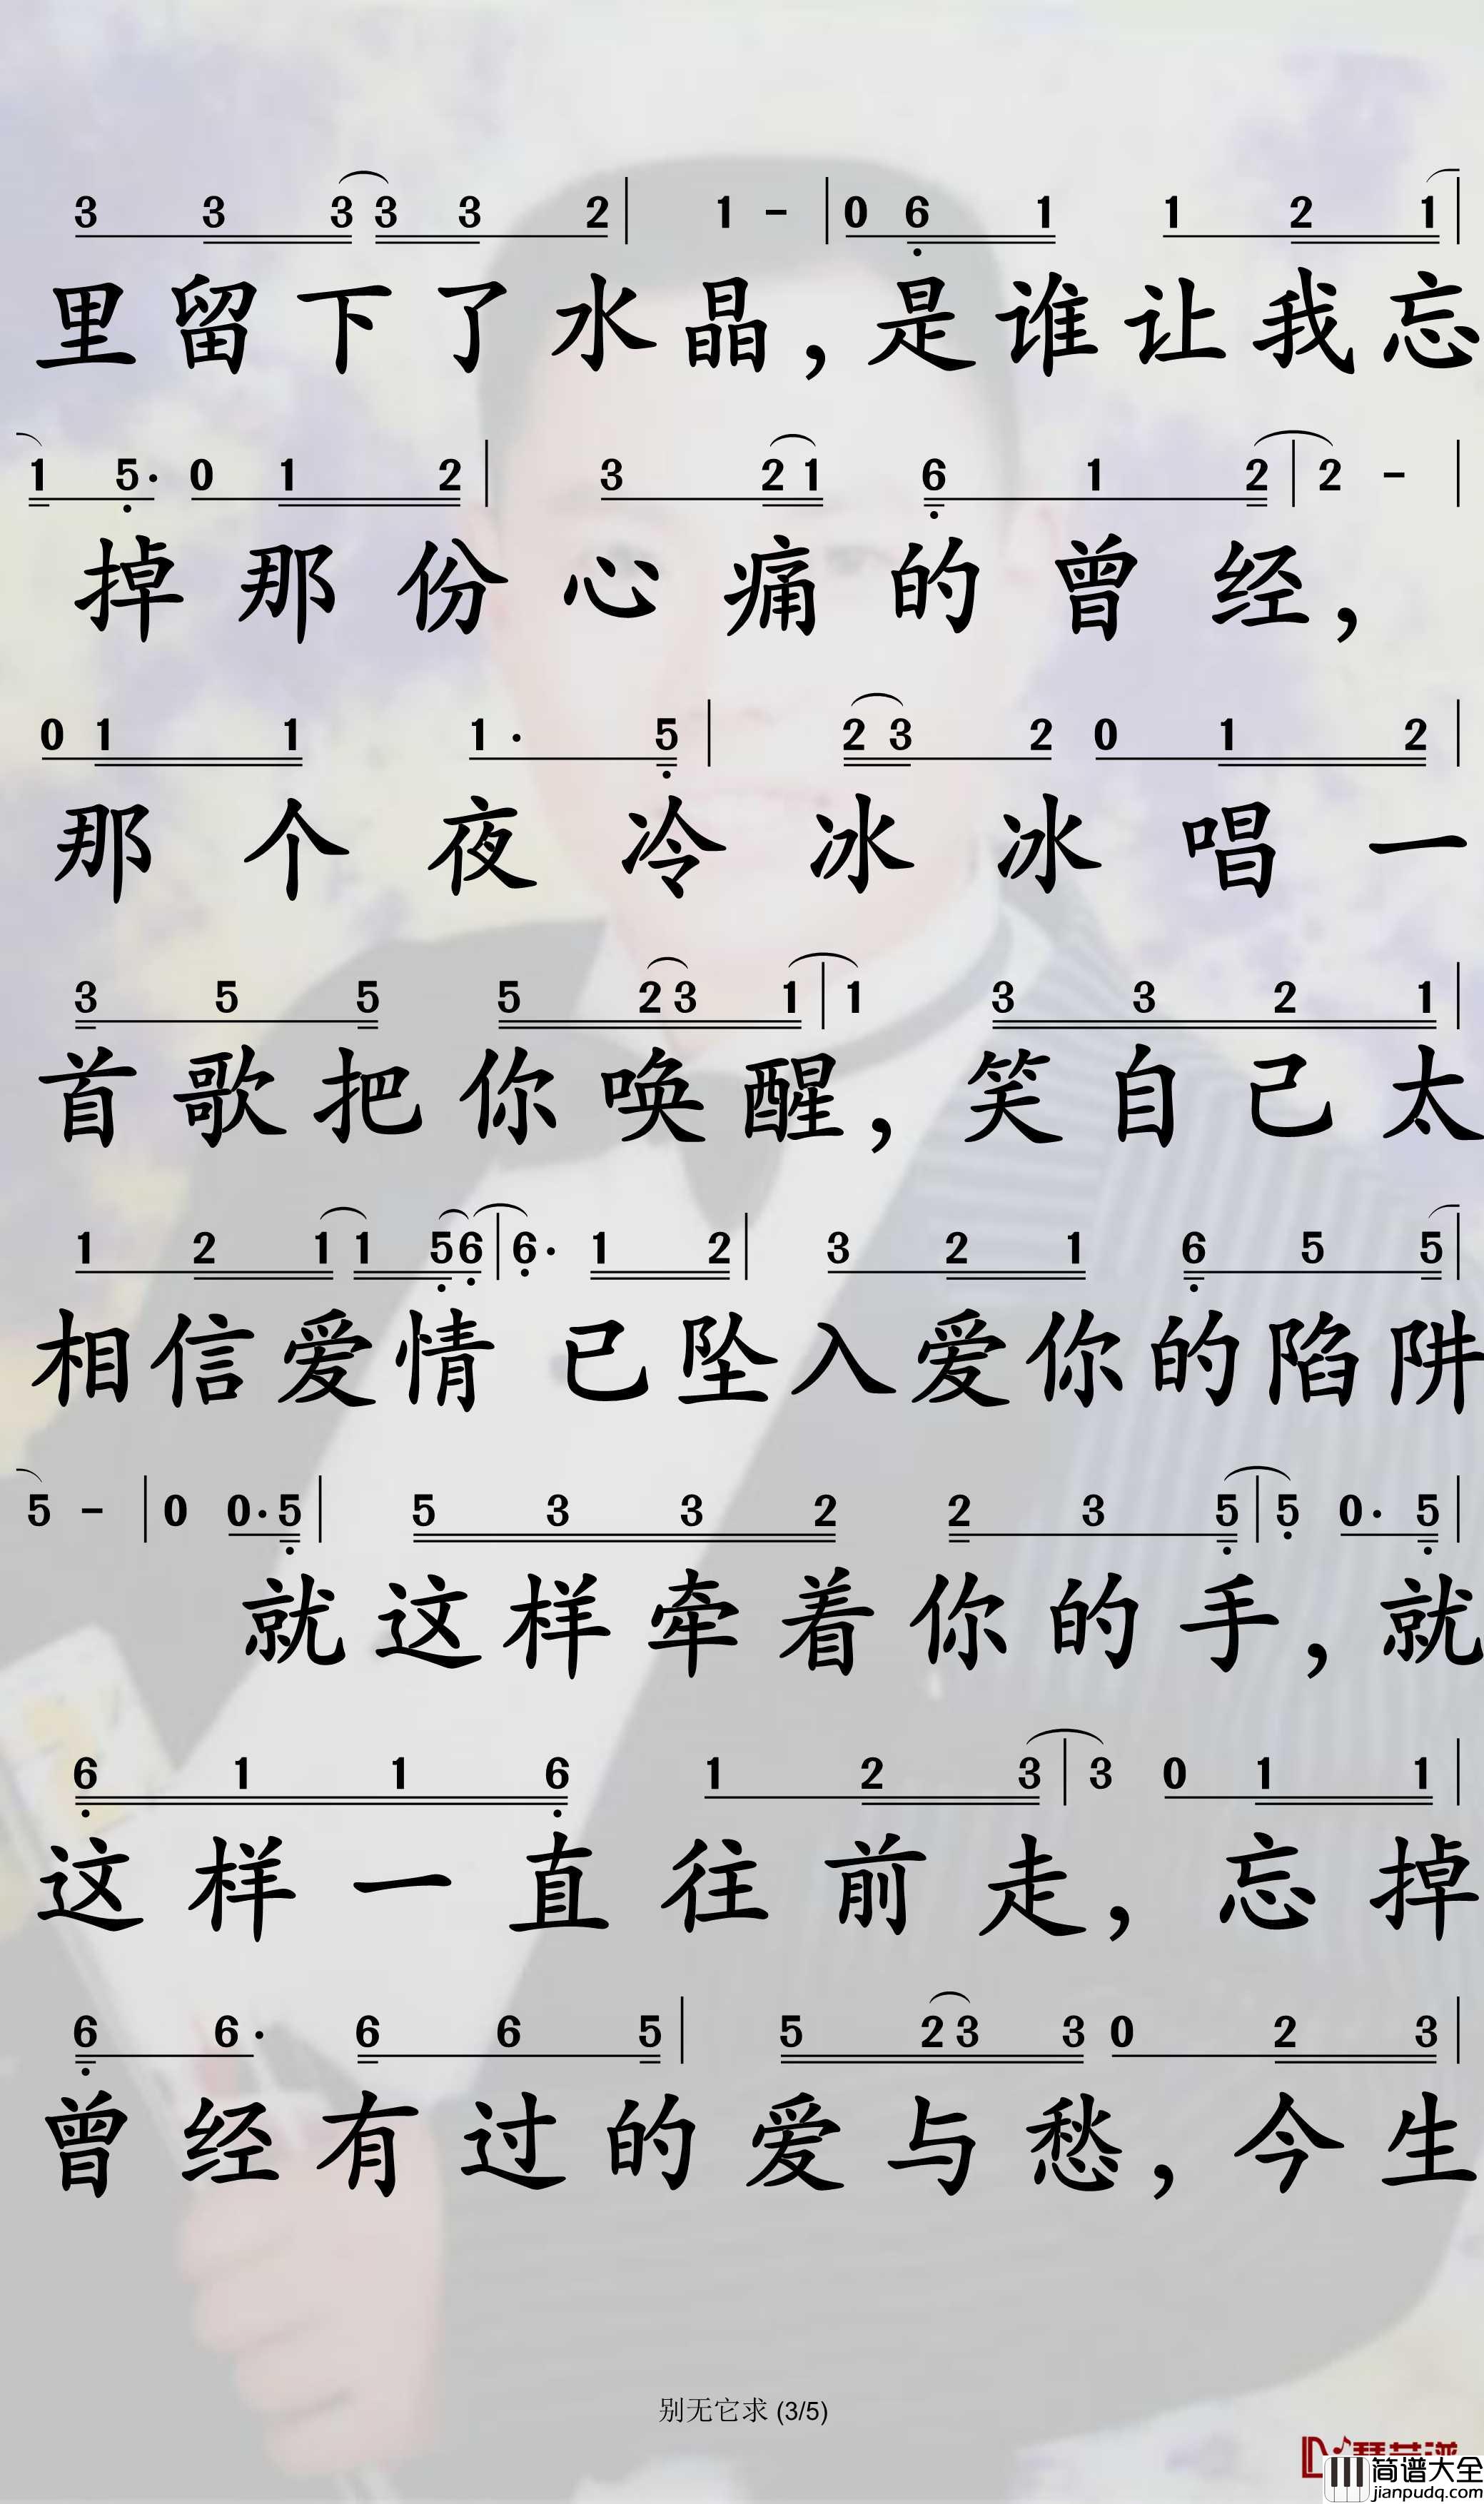 3 3 3 3 3 2 | 1 - | 0 6 1 1 2 1 |
里留下了水晶，是谁让我忘
1 5· 0 1 2 | 3 2 1 6 1 2 | 2 - |
掉那份心痛的曾经，
0 1 1 1· 5 | 2 3 2 0 1 2 |
那个夜冷冰冰唱一
3 5 5 5 2 3 1 | 1 3 3 2 1 |
首歌把你唤醒，笑自己太
1 2 1 1 5 6 | 6· 1 2 | 3 2 1 6 5 5 |
相信爱情 已坠入爱你的陷阱
5 - | 0 0· 5 | 5 3 3 2 2 3 5 | 5 0· 5 |
就这样牵着你的手，就
6 1 1 6 1 2 3 | 3 0 1 1 |
这样一直往前走，忘掉
6 6· 6 6 5 | 5 2 3 3 0 2 3 |
曾经有过的爱与愁，今生
别无它求 (3/5)
简谱大全
jianpudq.com